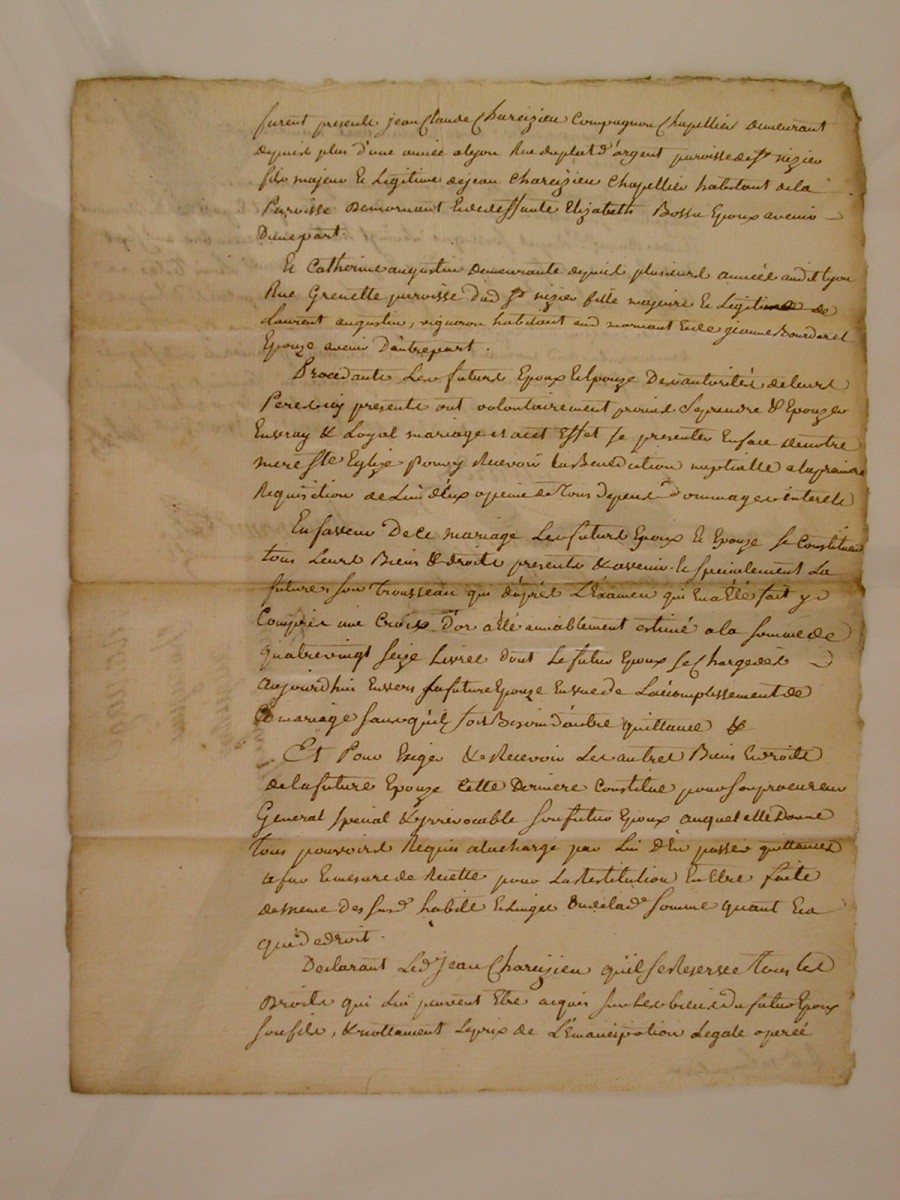 furent presents jean Claude Chareizieu Compagnon Chapellier demeurant
depuis plus d'une année a lyon Rue du plat d'argent paroisse de St nizier
fils majeur & Legitime de jean Chareizieu Chapellier habitant de la
Paroisse de mornant & de deffunte Elizabeth Bossu Epoux avenir
D'une part
Et Catherine augustin demeurante depuis plusieurs années aud it lyon
Rue Grenette paroisse dud St nizier fille majeure & Legitime de
Laurent augustin, vigneron habitant aud mornant & de jeanne Bourdaret
Epouze avenir D'autre part.
Procedants Les futurs Epoux & Epouze Des autorités de leurs
Peres icy presents ont volontairement promis Se prendre & Epouzer
En vray & Loyal mariage et a cet Effet se presenter En face de notre
mere Ste Eglize Pour y Recevoir La Benediction nuptialle a la premiere
Requisition de L'un d'Eux a peine de Tous depens Dommages interets
En faveur De ce mariage Les futurs Epoux & Epouze se Constituent
tous Leurs Biens & droits presents & avenir & specialement La
future son Trousseau qui d'après L'Examen qui En a Eté fait y
Compris une Croix D'or a Eté amiablement estimé a la somme de
quatre vingt seize Livres dont Le futur Epoux se Charge dès
aujourd'hui Envers La future Epouze En vue de L'acomplissement de
Ce mariage sans qu'il soit Besoin d'autre quittance &
Et Pour Exiger & Recevoir Les autres Biens & droits
de la future Epouze Cette Derniere Constitue pour son procureur
General special & irrevocable son futur Epoux auquel elle Donne
tous pouvoirs Requis a la charge par Lui d'En passer quittances
a fur & mesure de Recette pour La Restitution En Etre faite
de meme des susd habits & Linges & de lad somme quant & a
qui de droit.
Declarant Led jean Chareizieu qu'il se Reserve Tous les
Droits qui Lui peuvent Etre acquis sur Les biens du futur Epoux
son fils, & nottament Le prix de L'Emancipation Legale operée